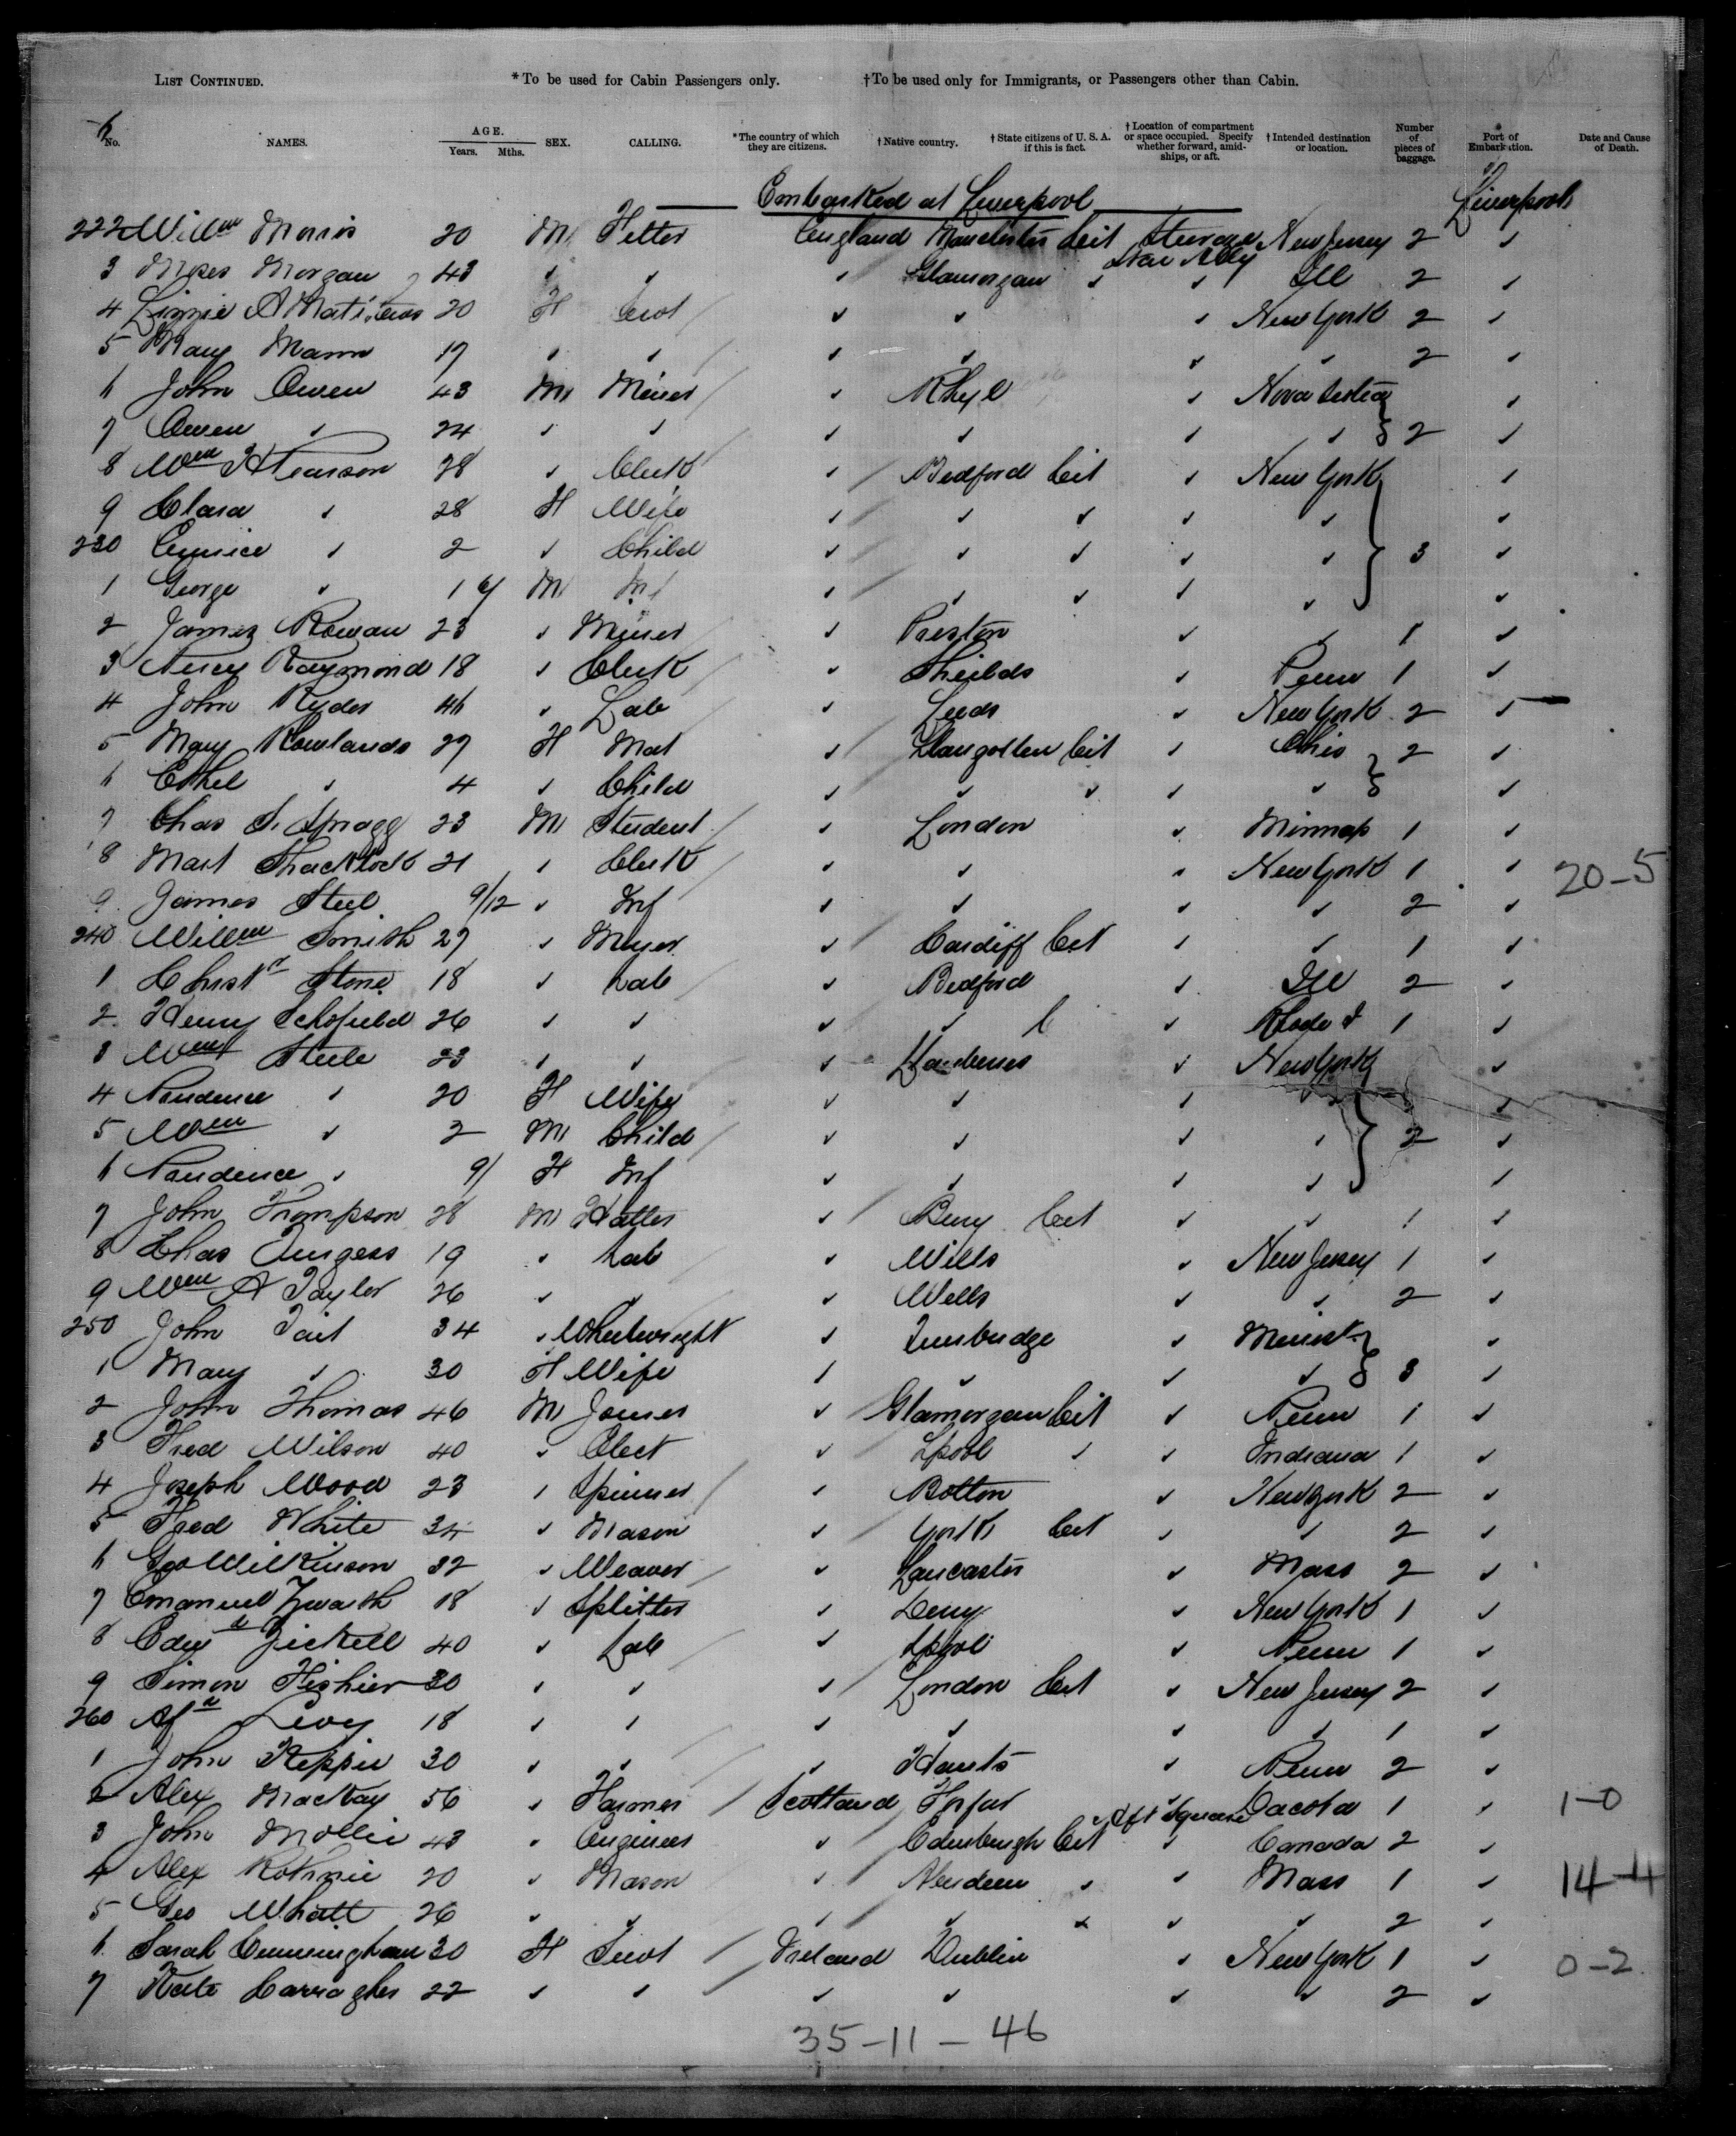 LIST CONTINUED. *To be used for Cabin Passengers only. †To be used only for Immigrants, or Passengers other than Cabin.
No. NAMES. AGE. Years. Mths. SEX. CALLING. *The country of which they are citizens. †Native country. †State citizens of U. S. A. if this is fact. †Location of compartment or space occupied. Specify whether forward, amid-ships, or aft. †Intended destination or location. Number of pieces of baggage. Port of Embarkation. Date and Cause of Death.
Embarked at Liverpool Liverpool
222 Willm Morris 20 M Fitter England Manchester Cit Steerage New Jersey 2 ✓
3 Moses Morgan 43 ✓ ✓ ✓ Glamorgan ✓ ✓ Ill 2 ✓
4 Linnie A 20 F ✓ ✓ ✓ New York 2 ✓
5 Mary Mann 19 ✓ ✓ ✓ ✓ ✓ ✓ 2 ✓
6 John Owen 43 M Miner ✓ Rhyl ✓ Nova Scotia ✓
7 Owen ✓ 24 ✓ ✓ ✓ ✓ ✓ ✓ 2 ✓
8 Wm 28 ✓ Clerk ✓ Bedford Cit ✓ New York ✓
9 Clara ✓ 28 F Wife ✓ ✓ ✓ ✓ ✓ ✓
230 ✓ 2 ✓ Child ✓ ✓ ✓ ✓ ✓ 3 ✓
1 George ✓ 1 M Inf ✓ ✓ ✓ ✓ ✓ ✓
2 James Rowan 23 ✓ Miner ✓ Preston ✓ ✓ 1 ✓
3 Percy Raymond 18 ✓ Clerk ✓ Shields ✓ Penn 1 ✓
4 John Ryder 46 ✓ Lab ✓ Leeds ✓ New York 2 ✓
5 Mary Rowlands 27 F Mat ✓ Llangollen Cit ✓ Ohio 2 ✓
6 Ethel ✓ 4 ✓ Child ✓ ✓ ✓ ✓ ✓ ✓
7 Chas S. Spragg 23 M Student ✓ London ✓ Minnap 1 ✓
8 Mart Shacklock 21 ✓ Clerk ✓ ✓ ✓ New York 1 ✓ 20-5
9 James Steel 9/12 ✓ Inf ✓ ✓ ✓ ✓ 2 ✓
240 Willm Smith 27 ✓ ✓ Cardiff Cit ✓ ✓ 1 ✓
1 Christr Stone 18 ✓ Lab ✓ Bedford ✓ Ill 2 ✓
2 Henry Schofield 26 ✓ ✓ ✓ ✓ ✓ Rhode I 1 ✓
3 Wm Steele 23 ✓ ✓ ✓ ✓ New York ✓
4 Prudence ✓ 20 F Wife ✓ ✓ ✓ ✓ ✓
5 Wm ✓ 2 M Child ✓ ✓ ✓ ✓ 2 ✓
6 Prudence ✓ 9/ F Inf ✓ ✓ ✓ ✓ ✓
7 John Thompson 28 M Hatter ✓ Bury Cit ✓ ✓ 1 ✓
8 Chas 19 ✓ Lab ✓ Wills ✓ New Jersey 1 ✓
9 Wm A Taylor 26 ✓ ✓ ✓ Wells ✓ ✓ 2 ✓
250 John Tait 34 ✓ Wheelwright ✓ ✓ ✓
1 Mary ✓ 30 F Wife ✓ ✓ ✓ ✓ 3 ✓
2 John Thomas 46 M Joiner ✓ Glamorgan Cit ✓ Penn 1 ✓
3 Fred Wilson 40 ✓ Elect ✓ Lpool ✓ ✓ Indiana 1 ✓
4 Joseph Wood 23 ✓ Spinner ✓ Bolton ✓ New York 2 ✓
5 Fred White 34 ✓ Mason ✓ York Cit ✓ ✓ 2 ✓
6 Geo Wilkinson 32 ✓ Weaver ✓ Lancaster ✓ Mass 2 ✓
7 Emanuel 18 ✓ Splitter ✓ ✓ New York 1 ✓
8 Edwd Zickell 40 ✓ Lab ✓ Lpool ✓ Penn 1 ✓
9 Simon 30 ✓ ✓ ✓ London Cit ✓ New Jersey 2 ✓
260 Levy 18 ✓ ✓ ✓ ✓ ✓ ✓ 1 ✓
1 John Keppie 30 ✓ ✓ ✓ Hants ✓ Penn 2 ✓
2 Alex Mackay 56 ✓ Farmer Scotland Forfar Aft Square Dacota 1 ✓ 1-0
3 John Mollie 43 ✓ Engineer ✓ Edinburgh Cit ✓ Canada 2 ✓
4 Alex Rothnie 20 ✓ Mason ✓ Aberdeen ✓ ✓ Mass 1 ✓ 14-4
5 Geo Whatt 26 ✓ ✓ ✓ ✓ ✓ ✓ ✓ 2 ✓
6 Sarah Cunningham 30 F Ireland Dublin ✓ New York 1 ✓ 0-2
7 Kate Carragher 22 ✓ ✓ ✓ ✓ ✓ ✓ 2 ✓
35-11-46